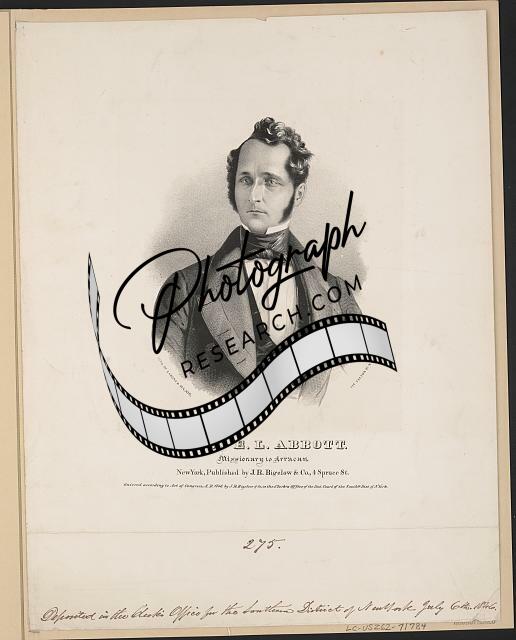 Photograph
RESEARCH.COM
E. L. ABBOTT.
Missionary to Arracan.
New York, Published by J. R. Bigelow & Co., 4 Spruce St.
Entered according to Act of Congress, A.D. 1846, by J. R. Bigelow & Co. in the Clerk's Office of the Dist. Court of the South'n Dist. of N. York.
275.
Deposited in the Clerk's Office for the Southern District of New York July 6th. 1846.
LC-USZ62-71784